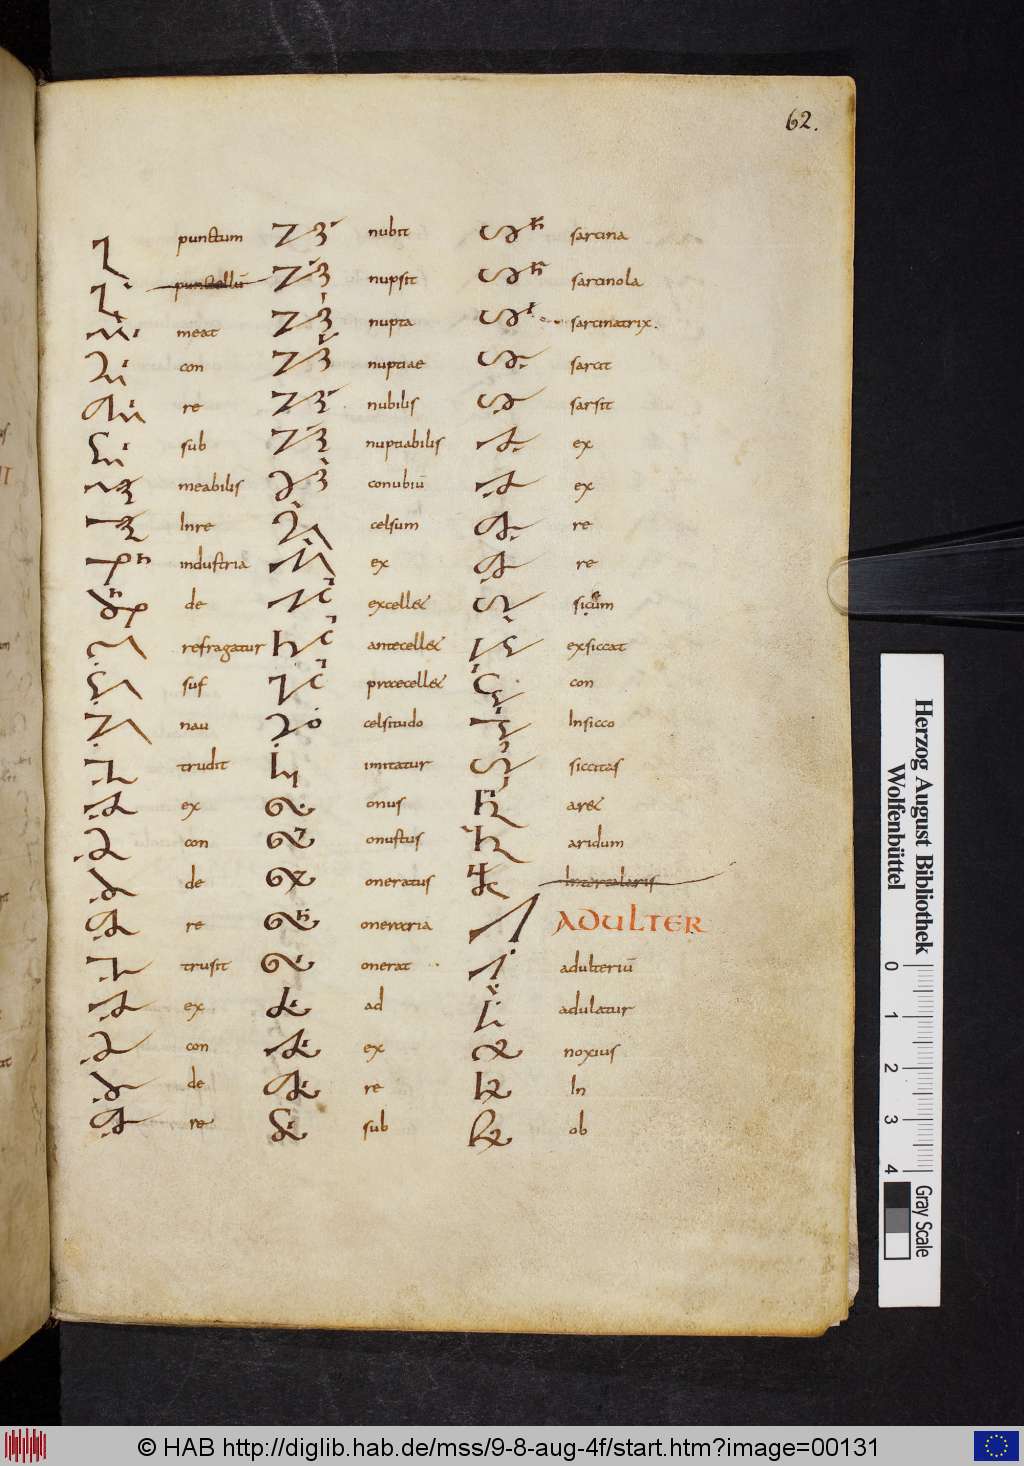 62.
punctum
punctellū
meat
con
re
sub
meabilis
Inre
industria
de
refragatur
suf
nau
trudit
ex
con
de
re
trusit
ex
con
de
re
nubit
nupsit
nupta
nuptiae
nubilis
nuptiabilis
conubiū
celsum
ex
excellet
antecellet
procecellet
celsitudo
imitatur
onus
onustus
oneratus
oneraria
onerat
ad
ex
re
sub
sarcina
sarcinola
sarcinatrix.
sarcit
sarsit
ex
ex
re
re
exsiccat
con
Insicco
siccitas
aret
aridum
Intercalaris
ADULTER
adulteriū
adulatur
noxius
In
ob
Herzog August Bibliothek
Wolfenbüttel
0 1 2 3 4
Gray Scale
© HAB http://diglib.hab.de/mss/9-8-aug-4f/start.htm?image=00131